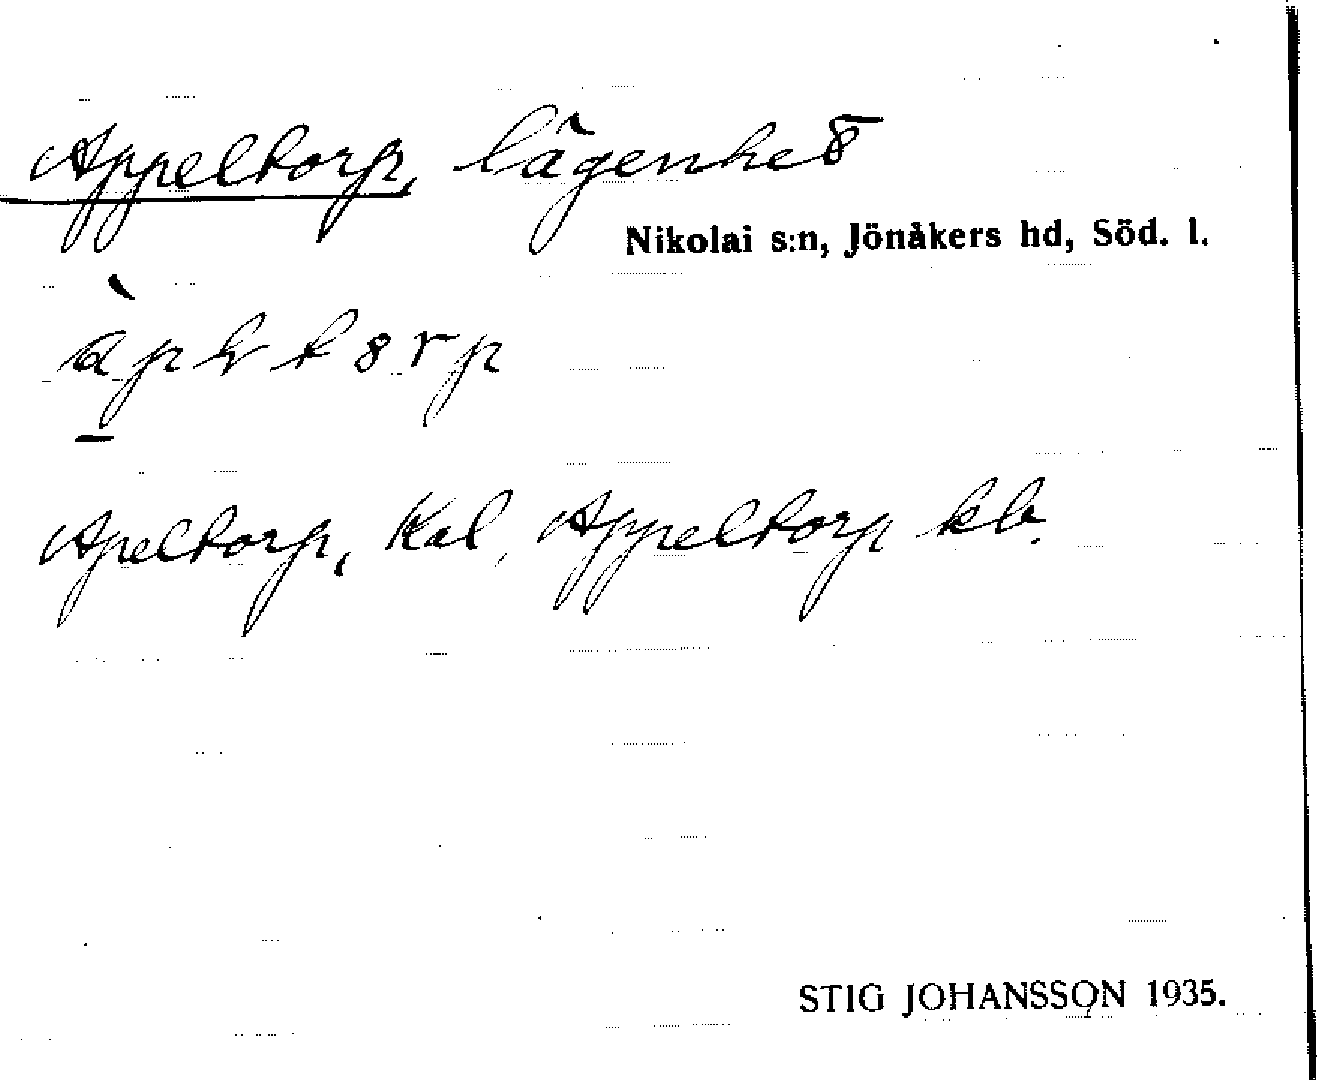 Appeltorp, lägenhet
Nikolai s:n, Jönåkers hd, Söd. l.
Apeltorp, Kal, Appeltorp kb.
STIG JOHANSSON 1935.